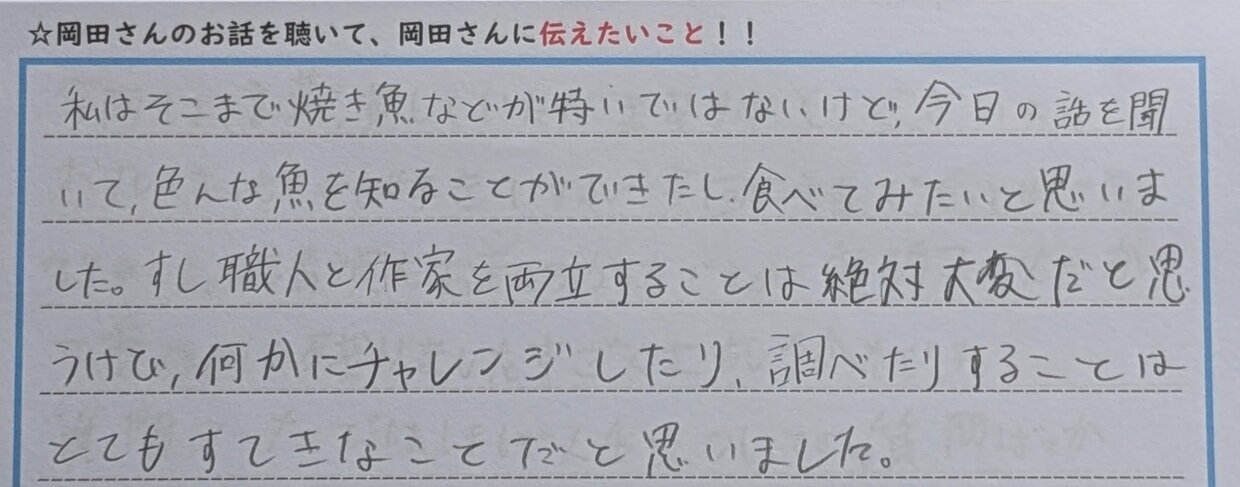 ☆岡田さんのお話を聴いて、岡田さんに伝えたいこと！！
私はそこまで焼き魚などが特いではないけど、今日の話を聞
いて、色んな魚を知ることができたし、食べてみたいと思いま
した。すし職人と作家を両立することは絶対大変だと思
うけど、何かにチャレンジしたり、調べたりすることは
とてもすてきなことだと思いました。